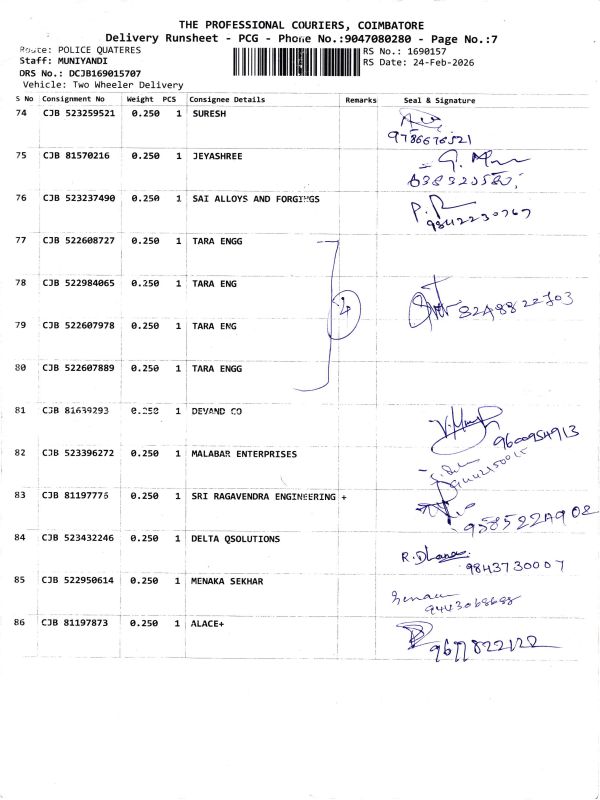 THE PROFESSIONAL COURIERS, COIMBATORE
Delivery Runsheet - PCG - Phone No.:9047080280 - Page No.:7
Route: POLICE QUATERES RS No.: 1690157
Staff: MUNIYANDI RS Date: 24-Feb-2026
DRS No.: DCJB169015707
Vehicle: Two Wheeler Delivery
S No Consignment No Weight PCS Consignee Details Remarks Seal & Signature
74 CJB 523259521 0.250 1 SURESH
9786676521
75 CJB 81570216 0.250 1 JEYASHREE
76 CJB 523237490 0.250 1 SAI ALLOYS AND FORGINGS
9842230767
77 CJB 522608727 0.250 1 TARA ENGG
78 CJB 522984065 0.250 1 TARA ENG
4
79 CJB 522607978 0.250 1 TARA ENG
80 CJB 522607889 0.250 1 TARA ENGG
81 CJB 81639293 0.250 1 DEVAND CO
9600954913
82 CJB 523396272 0.250 1 MALABAR ENTERPRISES
83 CJB 81197776 0.250 1 SRI RAGAVENDRA ENGINEERING +
84 CJB 523432246 0.250 1 DELTA QSOLUTIONS
R.Dhana
9843730007
85 CJB 522950614 0.250 1 MENAKA SEKHAR
86 CJB 81197873 0.250 1 ALACE+
9677822122